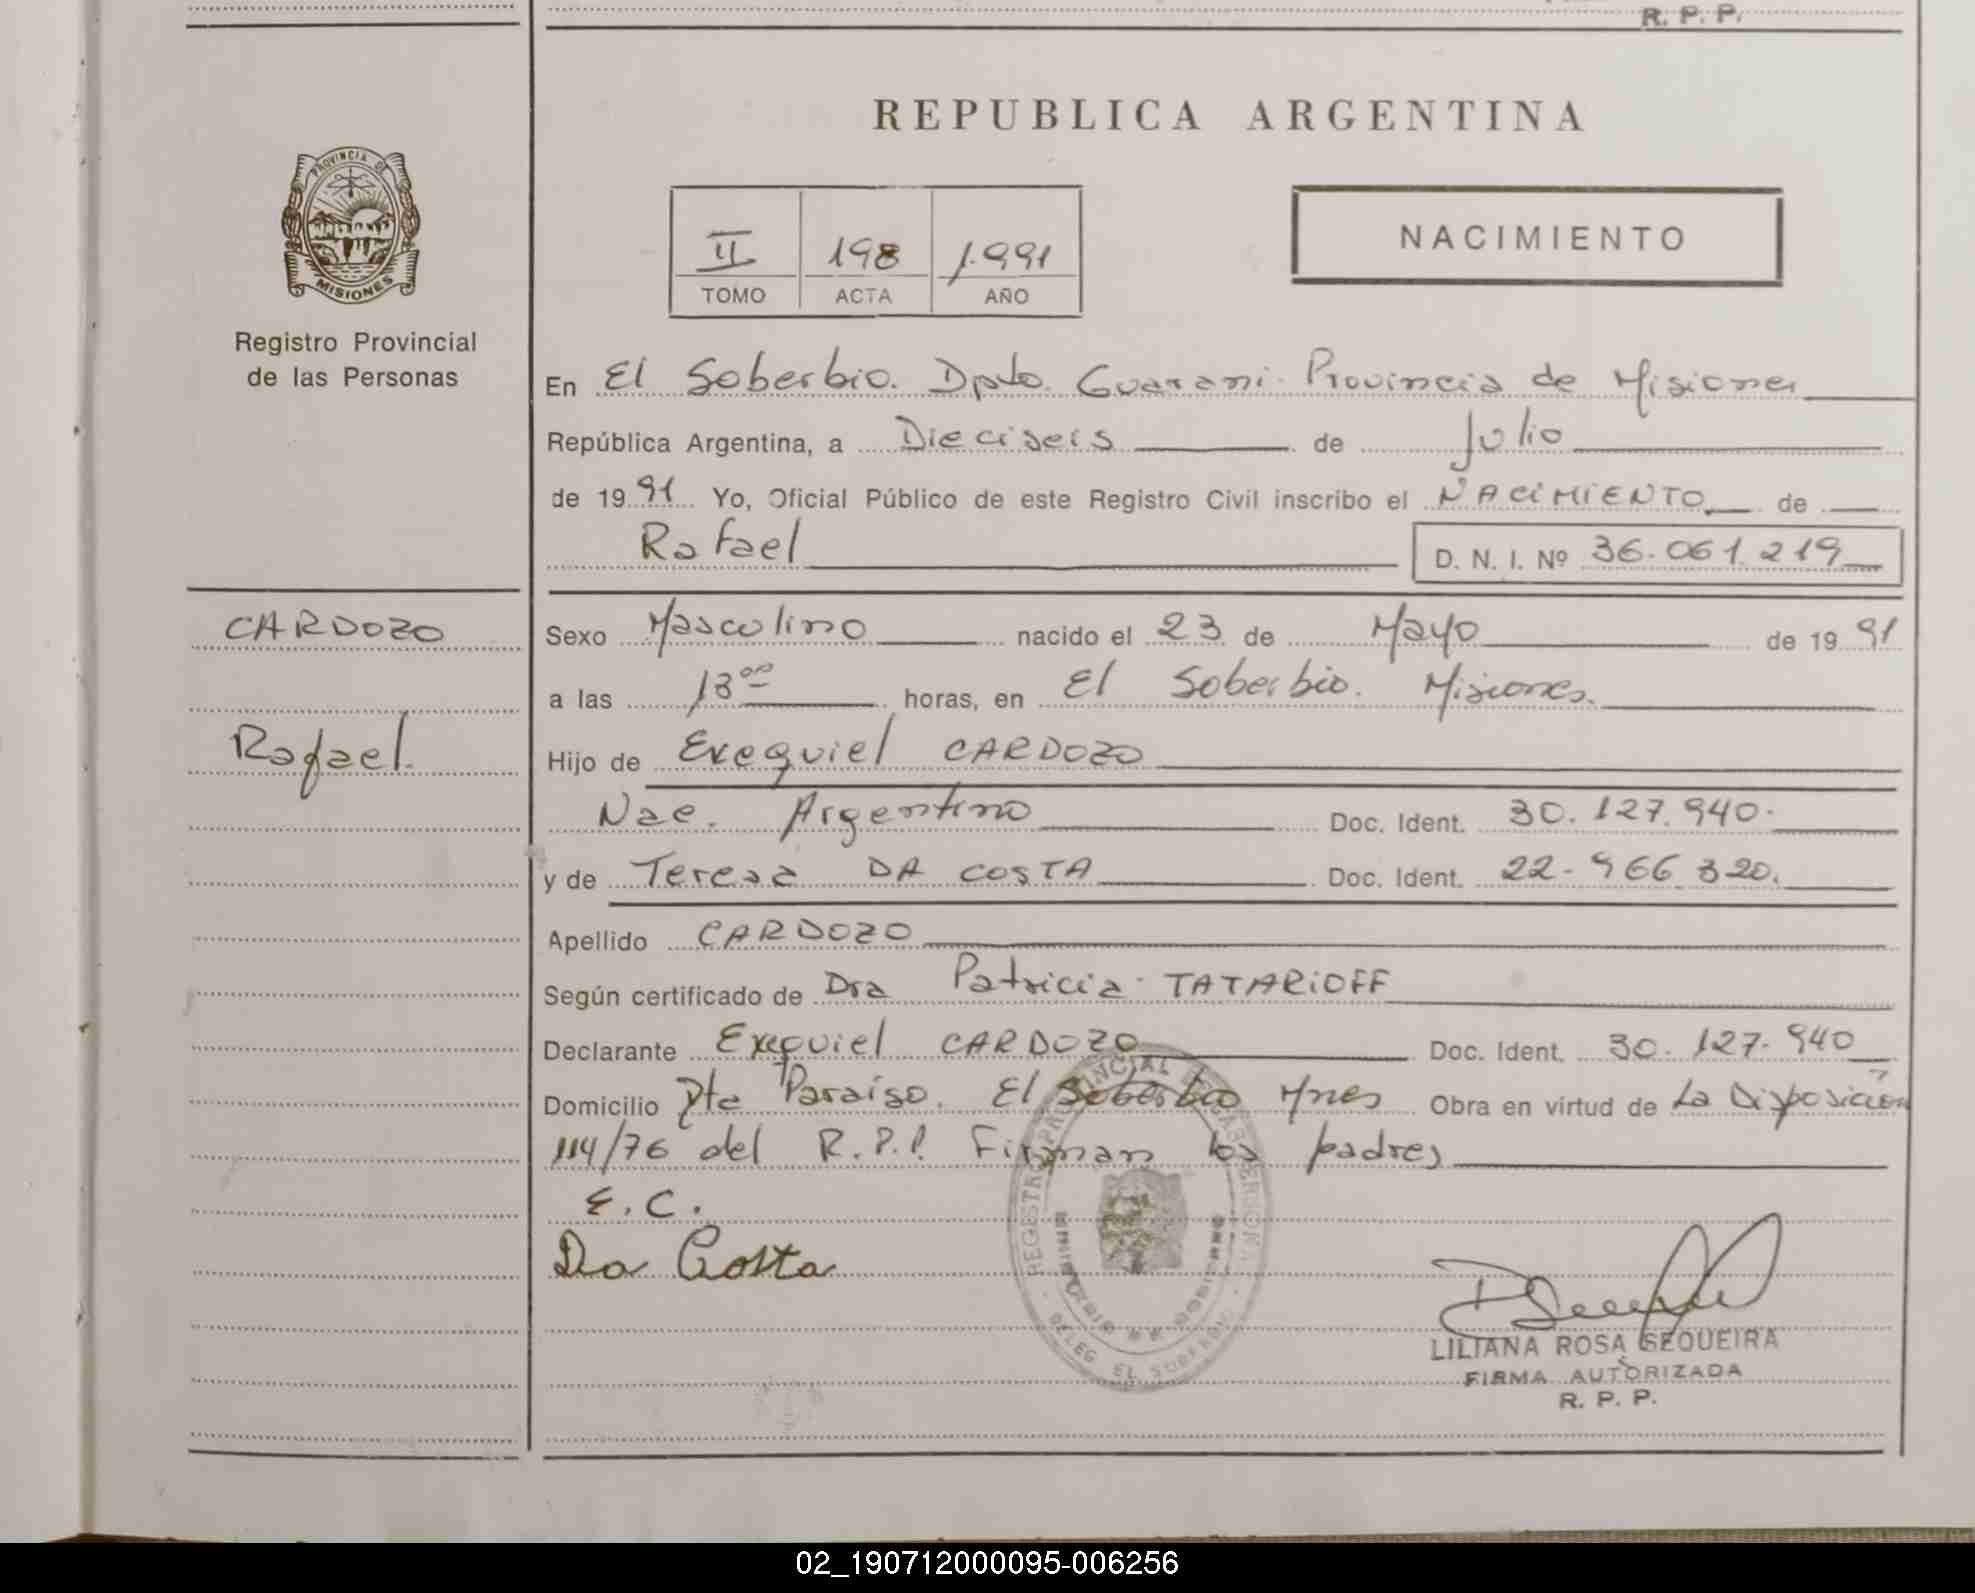 R. P. P.
REPUBLICA ARGENTINA
PROVINCIA DE
MISIONES
Registro Provincial
de las Personas
II 198 1.991
TOMO ACTA AÑO
NACIMIENTO
En El Soberbio. Dpto. Guarani. Provincia de Misiones
República Argentina, a Dieciseis de Julio
de 1991 Yo, Oficial Público de este Registro Civil inscribo el NACIMIENTO de
Rafael D. N. I. Nº 36.061.219
CARDOZO
Rafael.
Sexo Masculino nacido el 23 de Mayo de 1991
a las 13⁰⁰ horas, en El Soberbio. Misiones.
Hijo de Exequiel CARDOZO
Nac. Argentino Doc. Ident. 30.127.940.
y de Teresa DA COSTA Doc. Ident. 22.966.320.
Apellido CARDOZO
Según certificado de Dra Patricia TATARIOFF
Declarante Exequiel CARDOZO Doc. Ident. 30.127.940
Domicilio Pte Paraiso. El Soberbio Mnes Obra en virtud de La Disposición
114/76 del R.P.P. Firman los padres
E.C.
Da Costa
LILIANA ROSA SEQUEIRA
FIRMA AUTORIZADA
R. P. P.
02_190712000095-006256